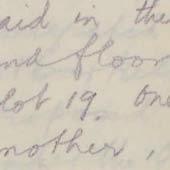 aid in the
nd floor
lot 19. One
mother,